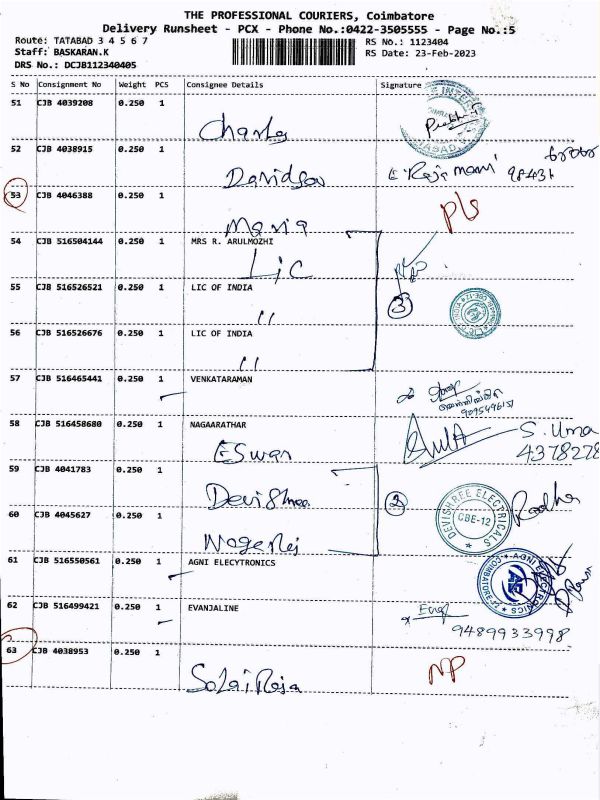 THE PROFESSIONAL COURIERS, Coimbatore
Delivery Runsheet - PCX - Phone No.:0422-3505555 - Page No.:5
Route: TATABAD 3 4 5 6 7
Staff: BASKARAN.K
DRS No.: DCJB112340405
RS No.: 1123404
RS Date: 23-Feb-2023
S No Consignment No Weight PCS Consignee Details Signature
51 CJB 4039208 0.250 1
52 CJB 4038915 0.250 1
Davidson E. Rajamani
53 CJB 4046388 0.250 1
Maria
54 CJB 516504144 0.250 1 MRS R. ARULMOZHI
LIC
55 CJB 516526521 0.250 1 LIC OF INDIA
11 3
56 CJB 516526676 0.250 1 LIC OF INDIA
11
57 CJB 516465441 0.250 1 VENKATARAMAN
58 CJB 516458680 0.250 1 NAGAARATHAR
Eswari S. Uma
4378278
59 CJB 4041783 0.250 1
Devi Shree 2 DEVISHREE ELECTRICALS CBE-12 Radha
60 CJB 4045627 0.250 1
61 CJB 516550561 0.250 1 AGNI ELECYTRONICS
AGNI ELECTRONICS
62 CJB 516499421 0.250 1 EVANJALINE
9489933998
63 CJB 4038953 0.250 1
Solai Raja NP